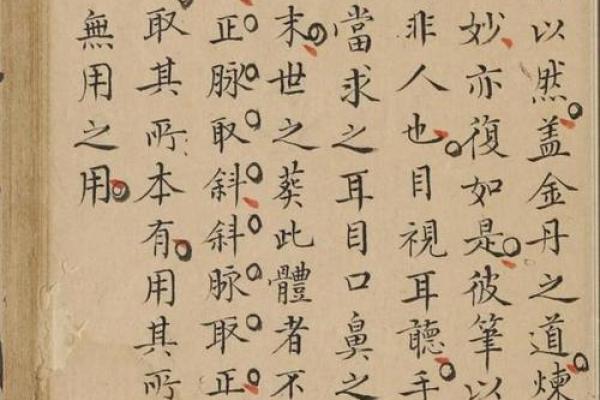 以然盖金丹之道煉
妙亦復如是彼筆以
非人也目視耳聽手
當求之耳目口鼻之
末世之葬此體者不
正脉取斜斜脉取正
取其所本有用其所
無用之用